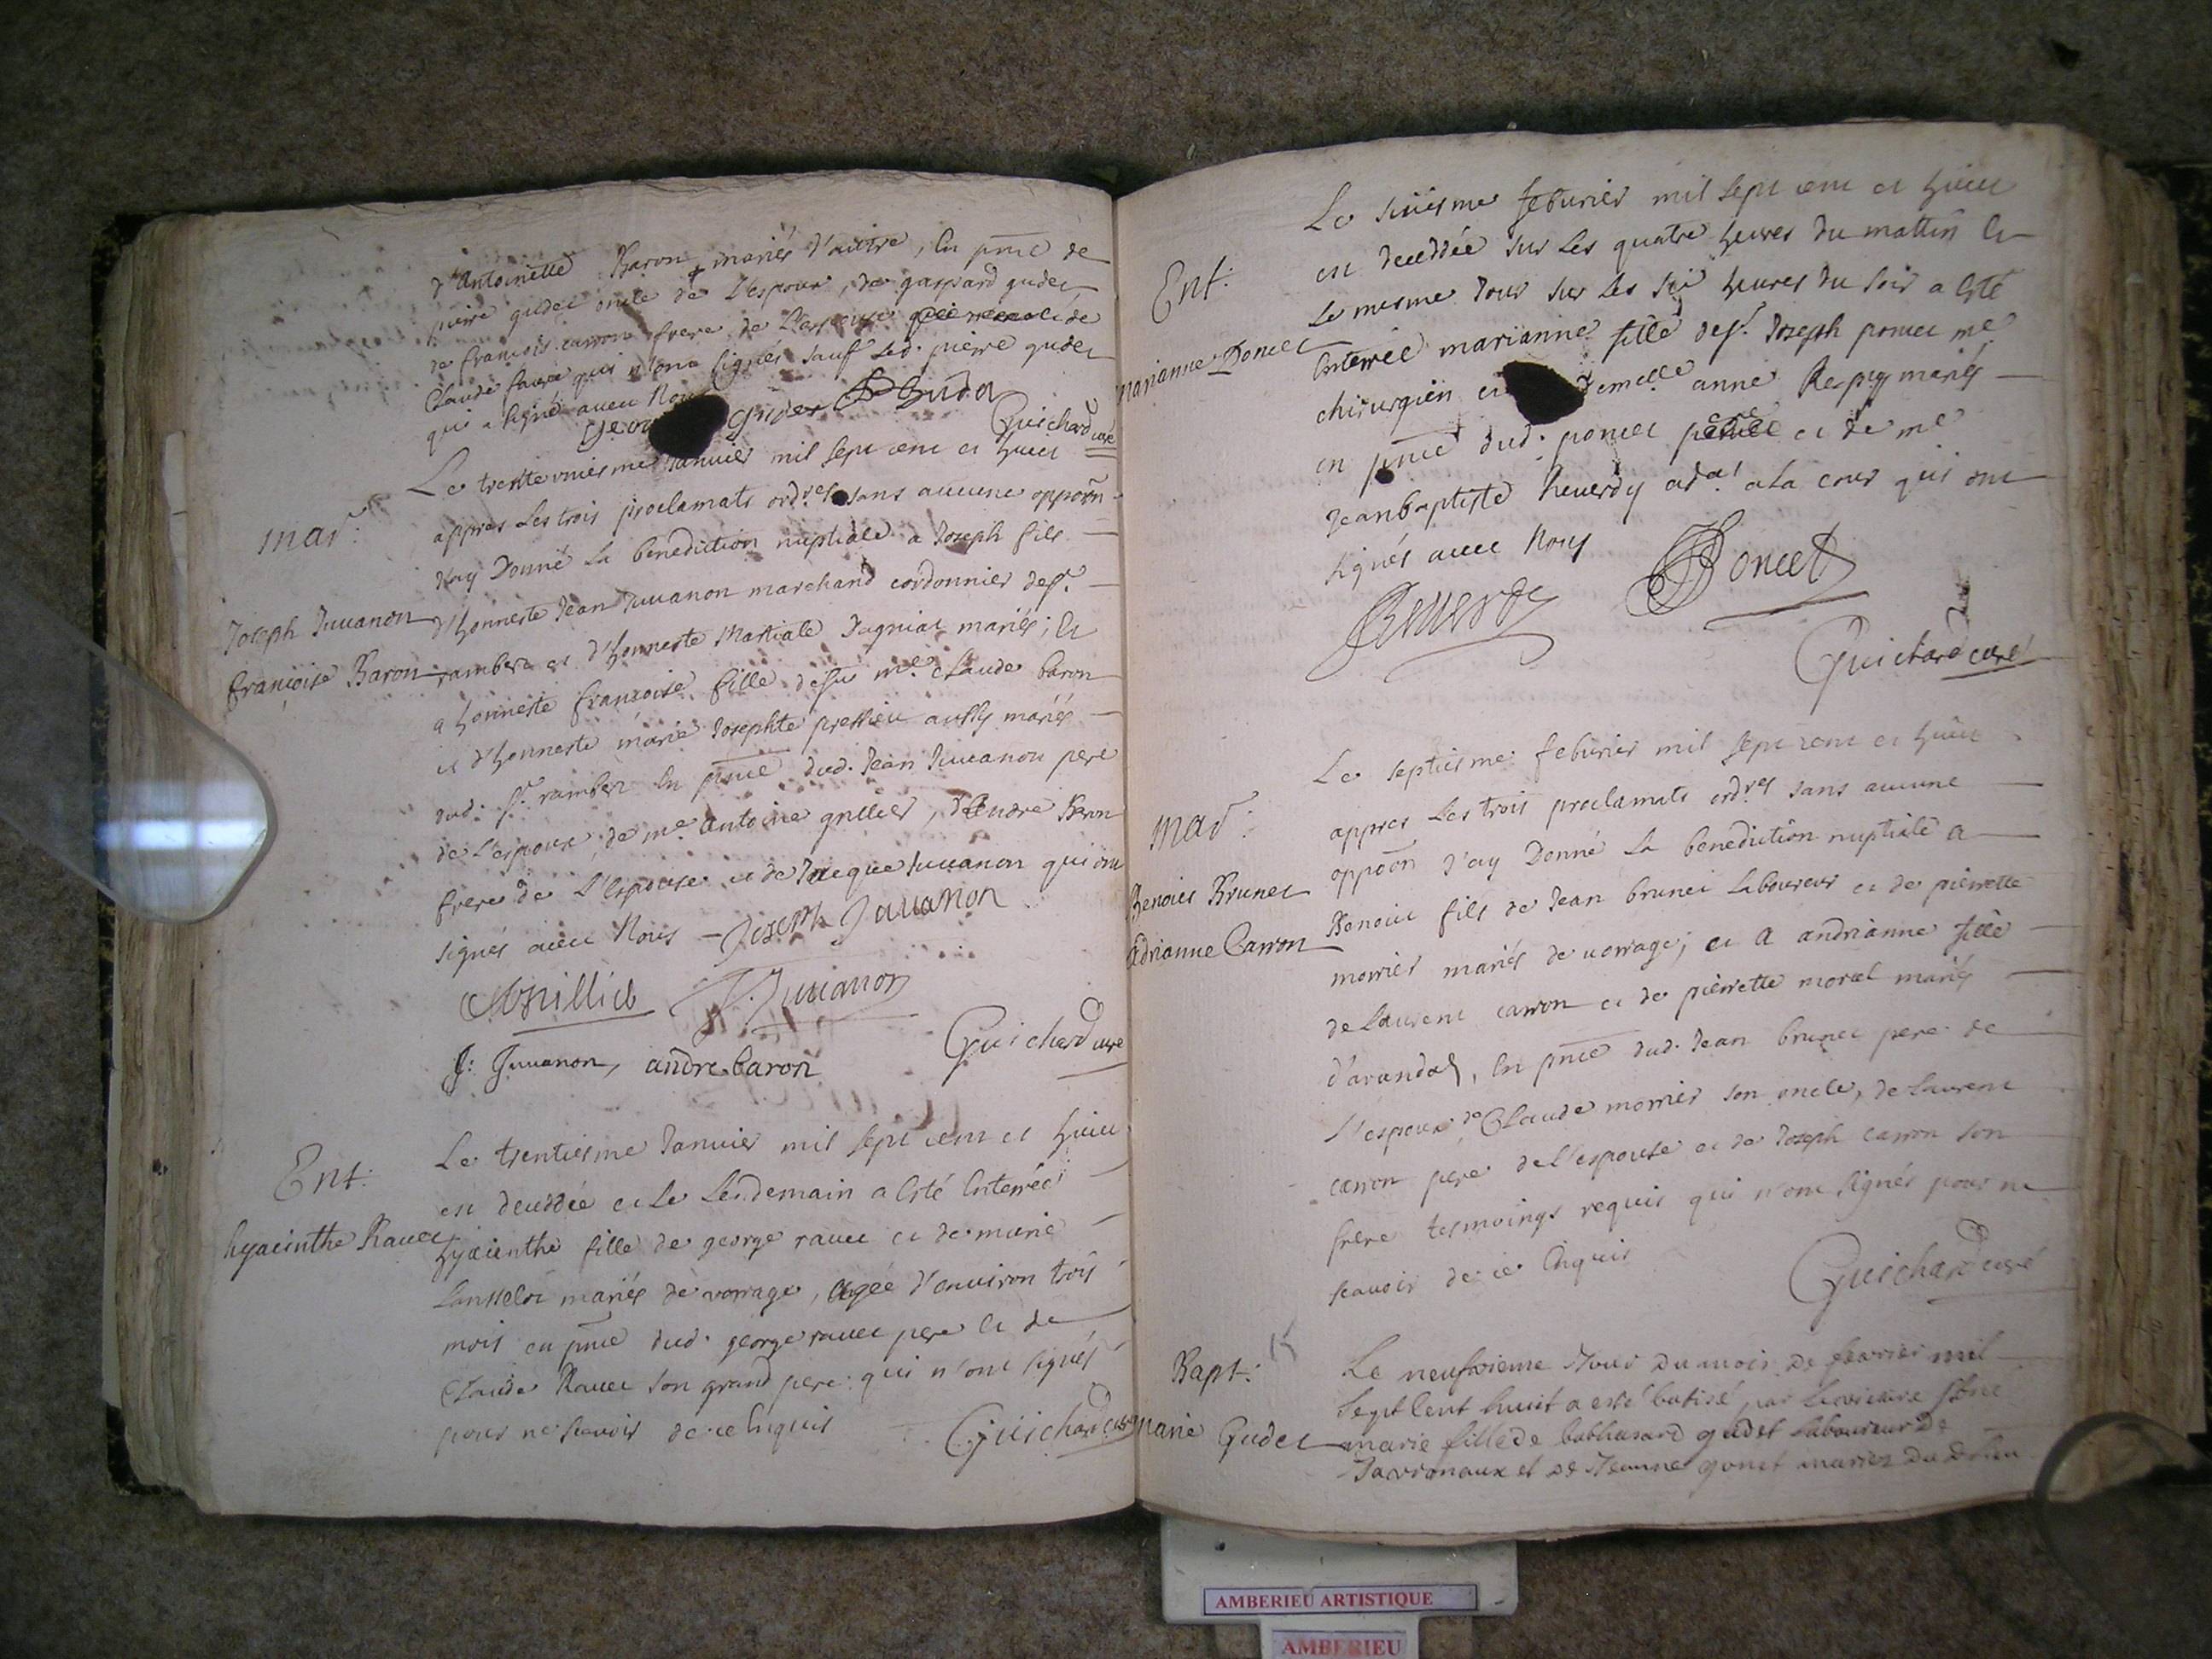 d'Antoinette Baron mariés d'autre, En pnce de
pierre gudet oncle de L'espoux, de gaspard gudet
de francois carron frere de L'espouse et de
Claude faure qui n'ont signés sauf led. pierre gudet
qui a signé avec Nous
gudet
Guichard curé
Mar.
Joseph Juvanon
françoise Baron
Le trente uniesme Janvier mil sept cent et huict
appres Les trois proclamats ordres sans aucune oppoôn
J'ay Donné La benediction nuptiale a Joseph fils
d'honneste Jean Juvanon marchand cordonnier de st
rambert et d'honneste Martiale Dagniat mariés; Et
a honneste françoise fille de feu me Claude baron
et d'honneste marie Josephte pressieu aussy mariés
dud. st rambert En pnce dud. Jean Juvanon pere
de L'espoux, de me Antoine grillier, d'Andre Baron
frere de L'Espouse et de Jacque Juvanon qui ont
signés avec Nous Joseph Juvanon
A Grillied J. Juvanon
J: Juvanon, andre baron
Guichard curé
Ent:
hyacinthe Ravet
Le trentiesme Janvier mil sept cent et huict
est deceddée et Le Lendemain a Esté Enterrée
hyacinthe fille de george ravet et de marie
Lansselot mariés de vorrage, Agée d'environ trois
mois en pnce dud. george ravet pere Et de
Claude Ravet son grand pere qui n'ont signés
pour ne scavoir de ce Enquis
Guichard curé
Ent:
Marianne Poncet
Le sixiesme febvrier mil sept cent et huict
est deceddée sur Les quatre heures du mattin Et
Le mesme Jour sur Les six heures du soir a Esté
Enterrée marianne fille de sr Joseph poncet me
chirurgien et demelle anne Respy mariés
en pnce dud. poncet pere et de me
Jeanbaptiste Reverdy adat a La cour qui ont
signés avec Nous
Reverdy Poncet
Guichard curé
Mar:
Benoict Brunet
Adrianne Carron
Le septiesme febvrier mil sept cent et huict
appres Les trois proclamats ordres sans aucune
oppoôn J'ay Donné La benediction nuptiale a
Benoict fils de Jean brunet Laboureur et de pierrette
morrier mariés de vorrage; et A andrianne fille
de Laurent carron et de pierrette morel mariés
d'arandas, En pnce dud. Jean brunet pere de
L'espoux, de Claude morrier son oncle, de Laurent
carron pere de L'espouse et de Joseph carron son
frere tesmoings requis qui n'ont signés pour ne
scavoir de ce Enquis
Guichard curé
Bapt:
Marie Gudet
Le neufvieme Jour du mois de fevrier mil
sept Cent huit a esté batisé par Le vicaire
marie fille de balthasard gudet Laboureur de
Javronaux et de Jeanne gonet mariez du d lieu
AMBERIEU ARTISTIQUE
AMBERIEU